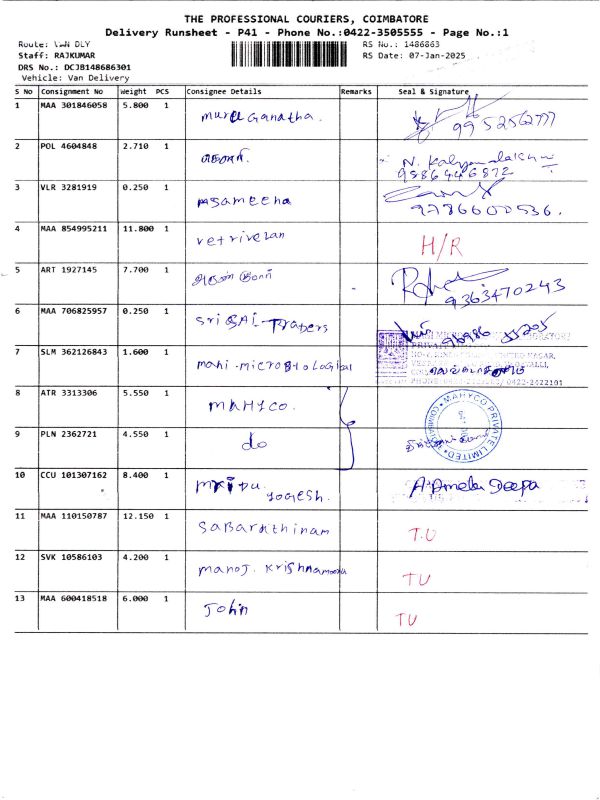 THE PROFESSIONAL COURIERS, COIMBATORE
Delivery Runsheet - P41 - Phone No.:0422-3505555 - Page No.:1
Route: VAN DLY RS No.: 1486863
Staff: RAJKUMAR RS Date: 07-Jan-2025
DRS No.: DCJB148686301
Vehicle: Van Delivery
S No Consignment No Weight PCS Consignee Details Remarks Seal & Signature
1 MAA 301846058 5.800 1 9952562777
2 POL 4604848 2.710 1 N. Kalyanalakshmi
9586446872
3 VLR 3281919 0.250 1 Asameena
9786600536.
4 MAA 854995211 11.800 1 vetrivelan H/R
5 ART 1927145 7.700 1 அருண் குமார் 9363470243
6 MAA 706825957 0.250 1 Sri SAI Drapers
7 SLM 362126843 1.600 1 mahi microbiological
8 ATR 3313306 5.550 1 MAHYCO. MAHYCO PRIVATE LIMITED
9 PLN 2362721 4.550 1 do
10 CCU 101307162 8.400 1 yogesh. Deepa
11 MAA 110150787 12.150 1 T.U
12 SVK 10586103 4.200 1 manoj. Krishnamoorthi TU
13 MAA 600418518 6.000 1 John TU